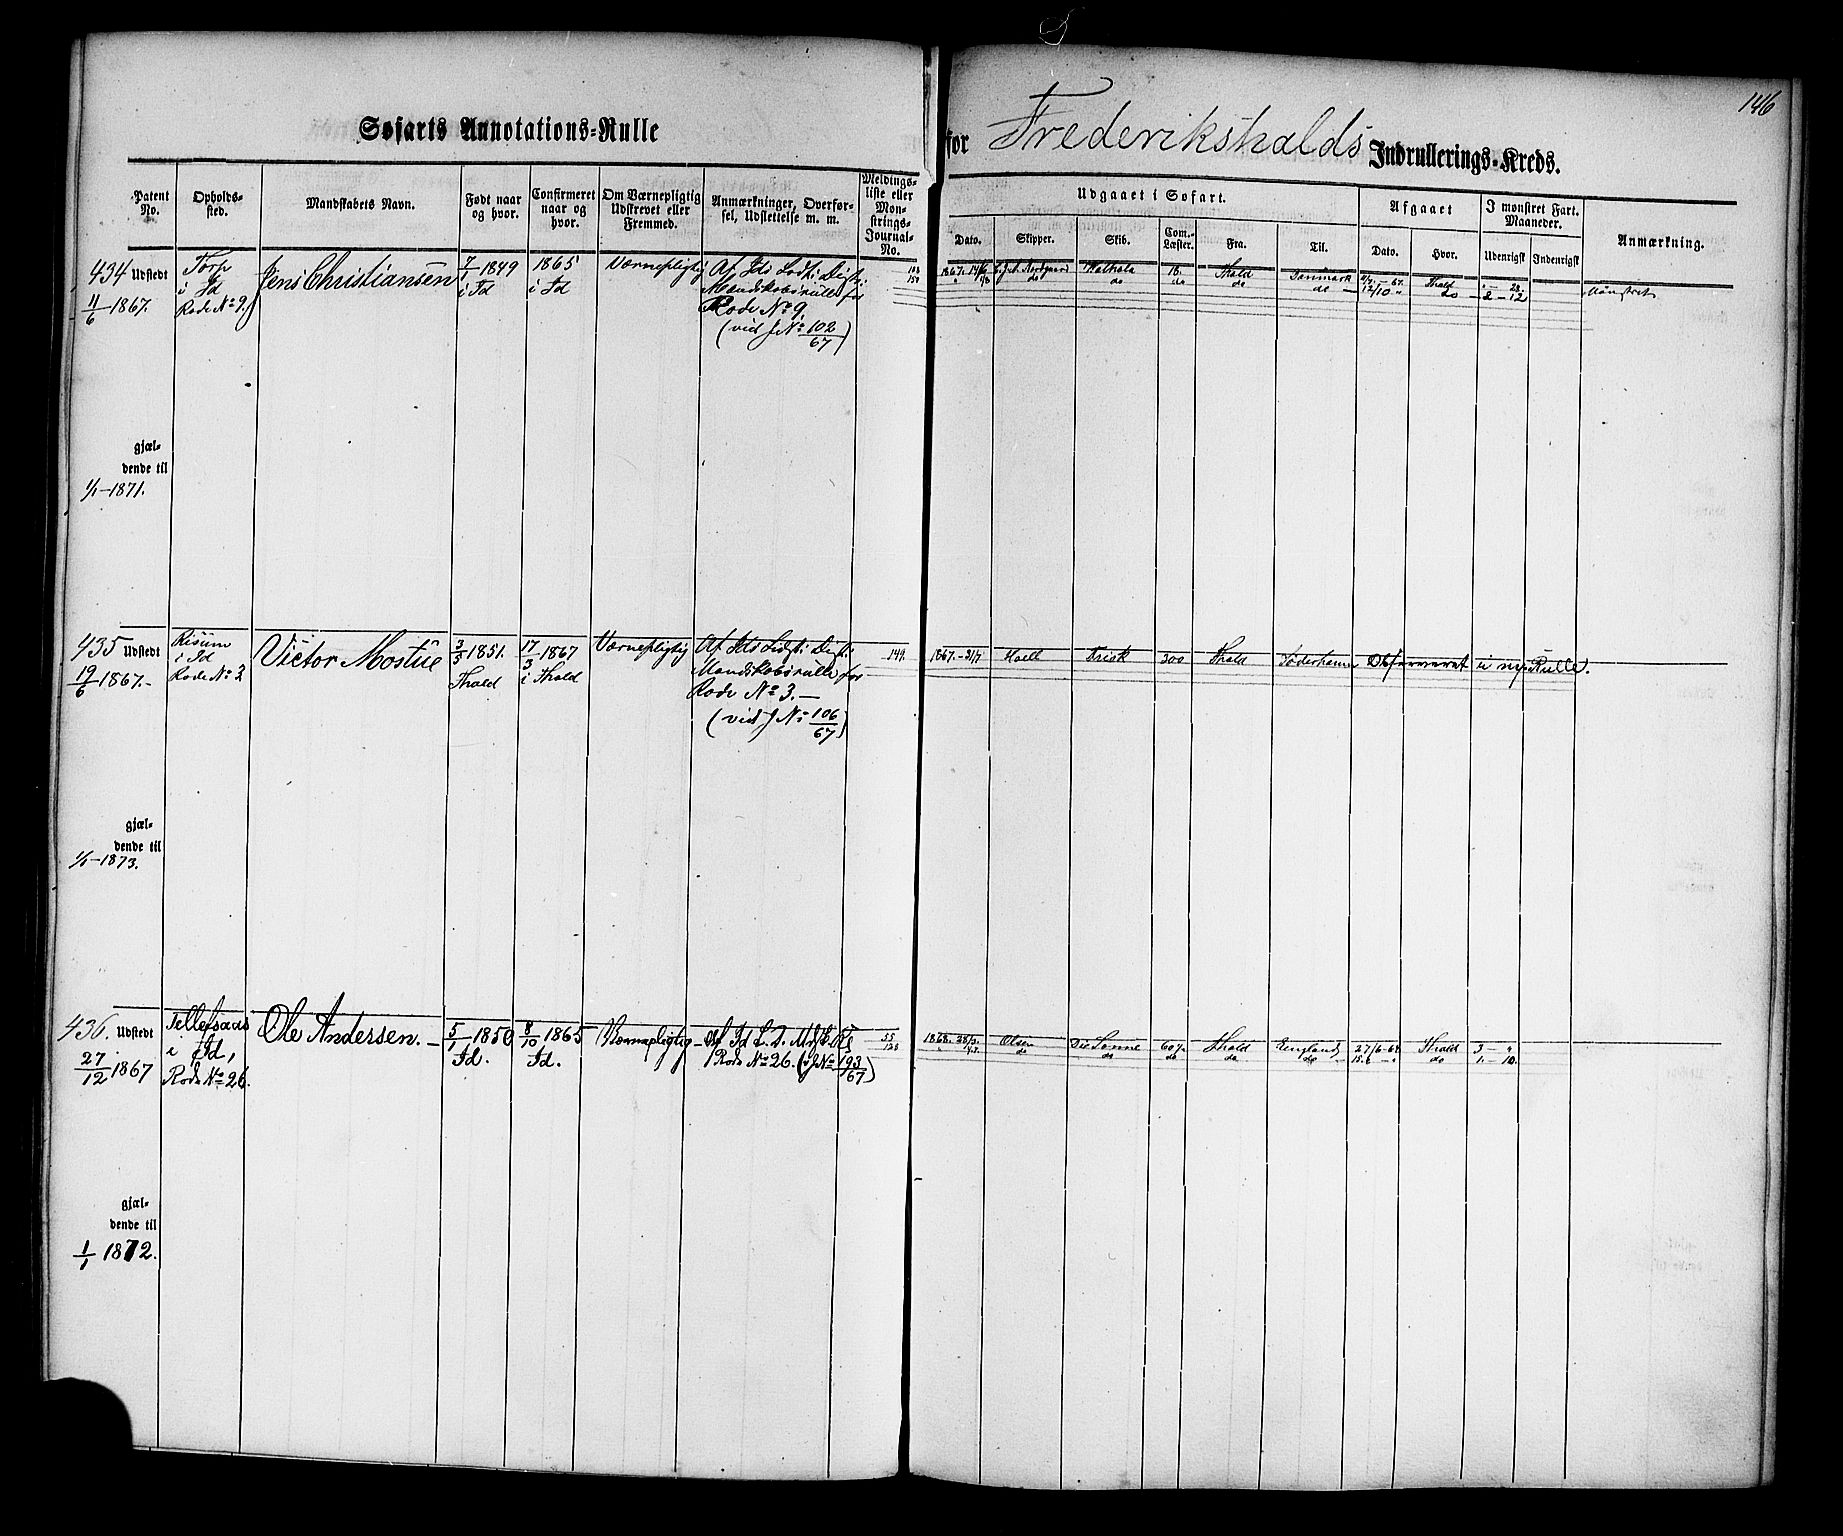 146
Søfarts Annotations-Rulle
for Frederikshalds Indrullerings-Kreds.
Patent No.
Opholds-sted.
Mandskabets Navn.
Født naar og hvor.
Confirmeret naar og hvor.
Om Værnepligtig Udskrevet eller Fremmed.
Anmærkninger, Overførsel, Udslettelse m. m.
Meldings-liste eller Mon-strings-Journal-No.
Udgaaet i Søfart.
Dato.
Skipper.
Skib.
Com.-Læster.
Fra.
Til.
Afgaaet
Dato.
Hvor.
I mønstret Fart. Maaneder.
Udenrigsk
Indenrigsk
Anmærkning.
434 Udstedt
11/6 -1867.
Torp
i Id
Rode No 9.
Jens Christiansen
7/1 1849
i Id
1865
i Id
Værnepligtig
Af Ids Lodsti: Distr:
Mandskabsrulle for
Rode No 9.
(vid J No 102/67)
1867. 14/6
do
18.
do
Fhald
do
Danmark
do
12/10
Fhald
do
2 - 12
Mønstret
gjæl-
dende til
1/1-1871.
435 Udstedt
19/6 1867.-
Risum
i Id
Rode No 3
Victor Mostue
3/5 1851.
Fhald
17/3 1867
i Fhald
Værnepligtig
Af Ids Lodsti: Distr:
Mandskabsrulle for
Rode No 3.-
(vid J No 106/67)
149.
1867.- 31/7
Frisk
300
Fhald
Søderhamn
i ny Rulle.
gjæl-
dende til
1/1-1873.
436. Udstedt
27/12 1867
Tellefsaas
i Id,
Rode No 26.
Ole Andersen.-
5/1 1850
Id.
8/10 1865
Id.
Værnepligtig
Af Id L. D.
Rode No 26. (v J No 193/67)
55
128
1868.
Olsen
do
De Sønne
do
60½
do
Fhald
do
England
do
27/6-68
15/8 - "
Fhald
do
3 - "
1. - 10.
gjæl-
dende til
1/1 1872.